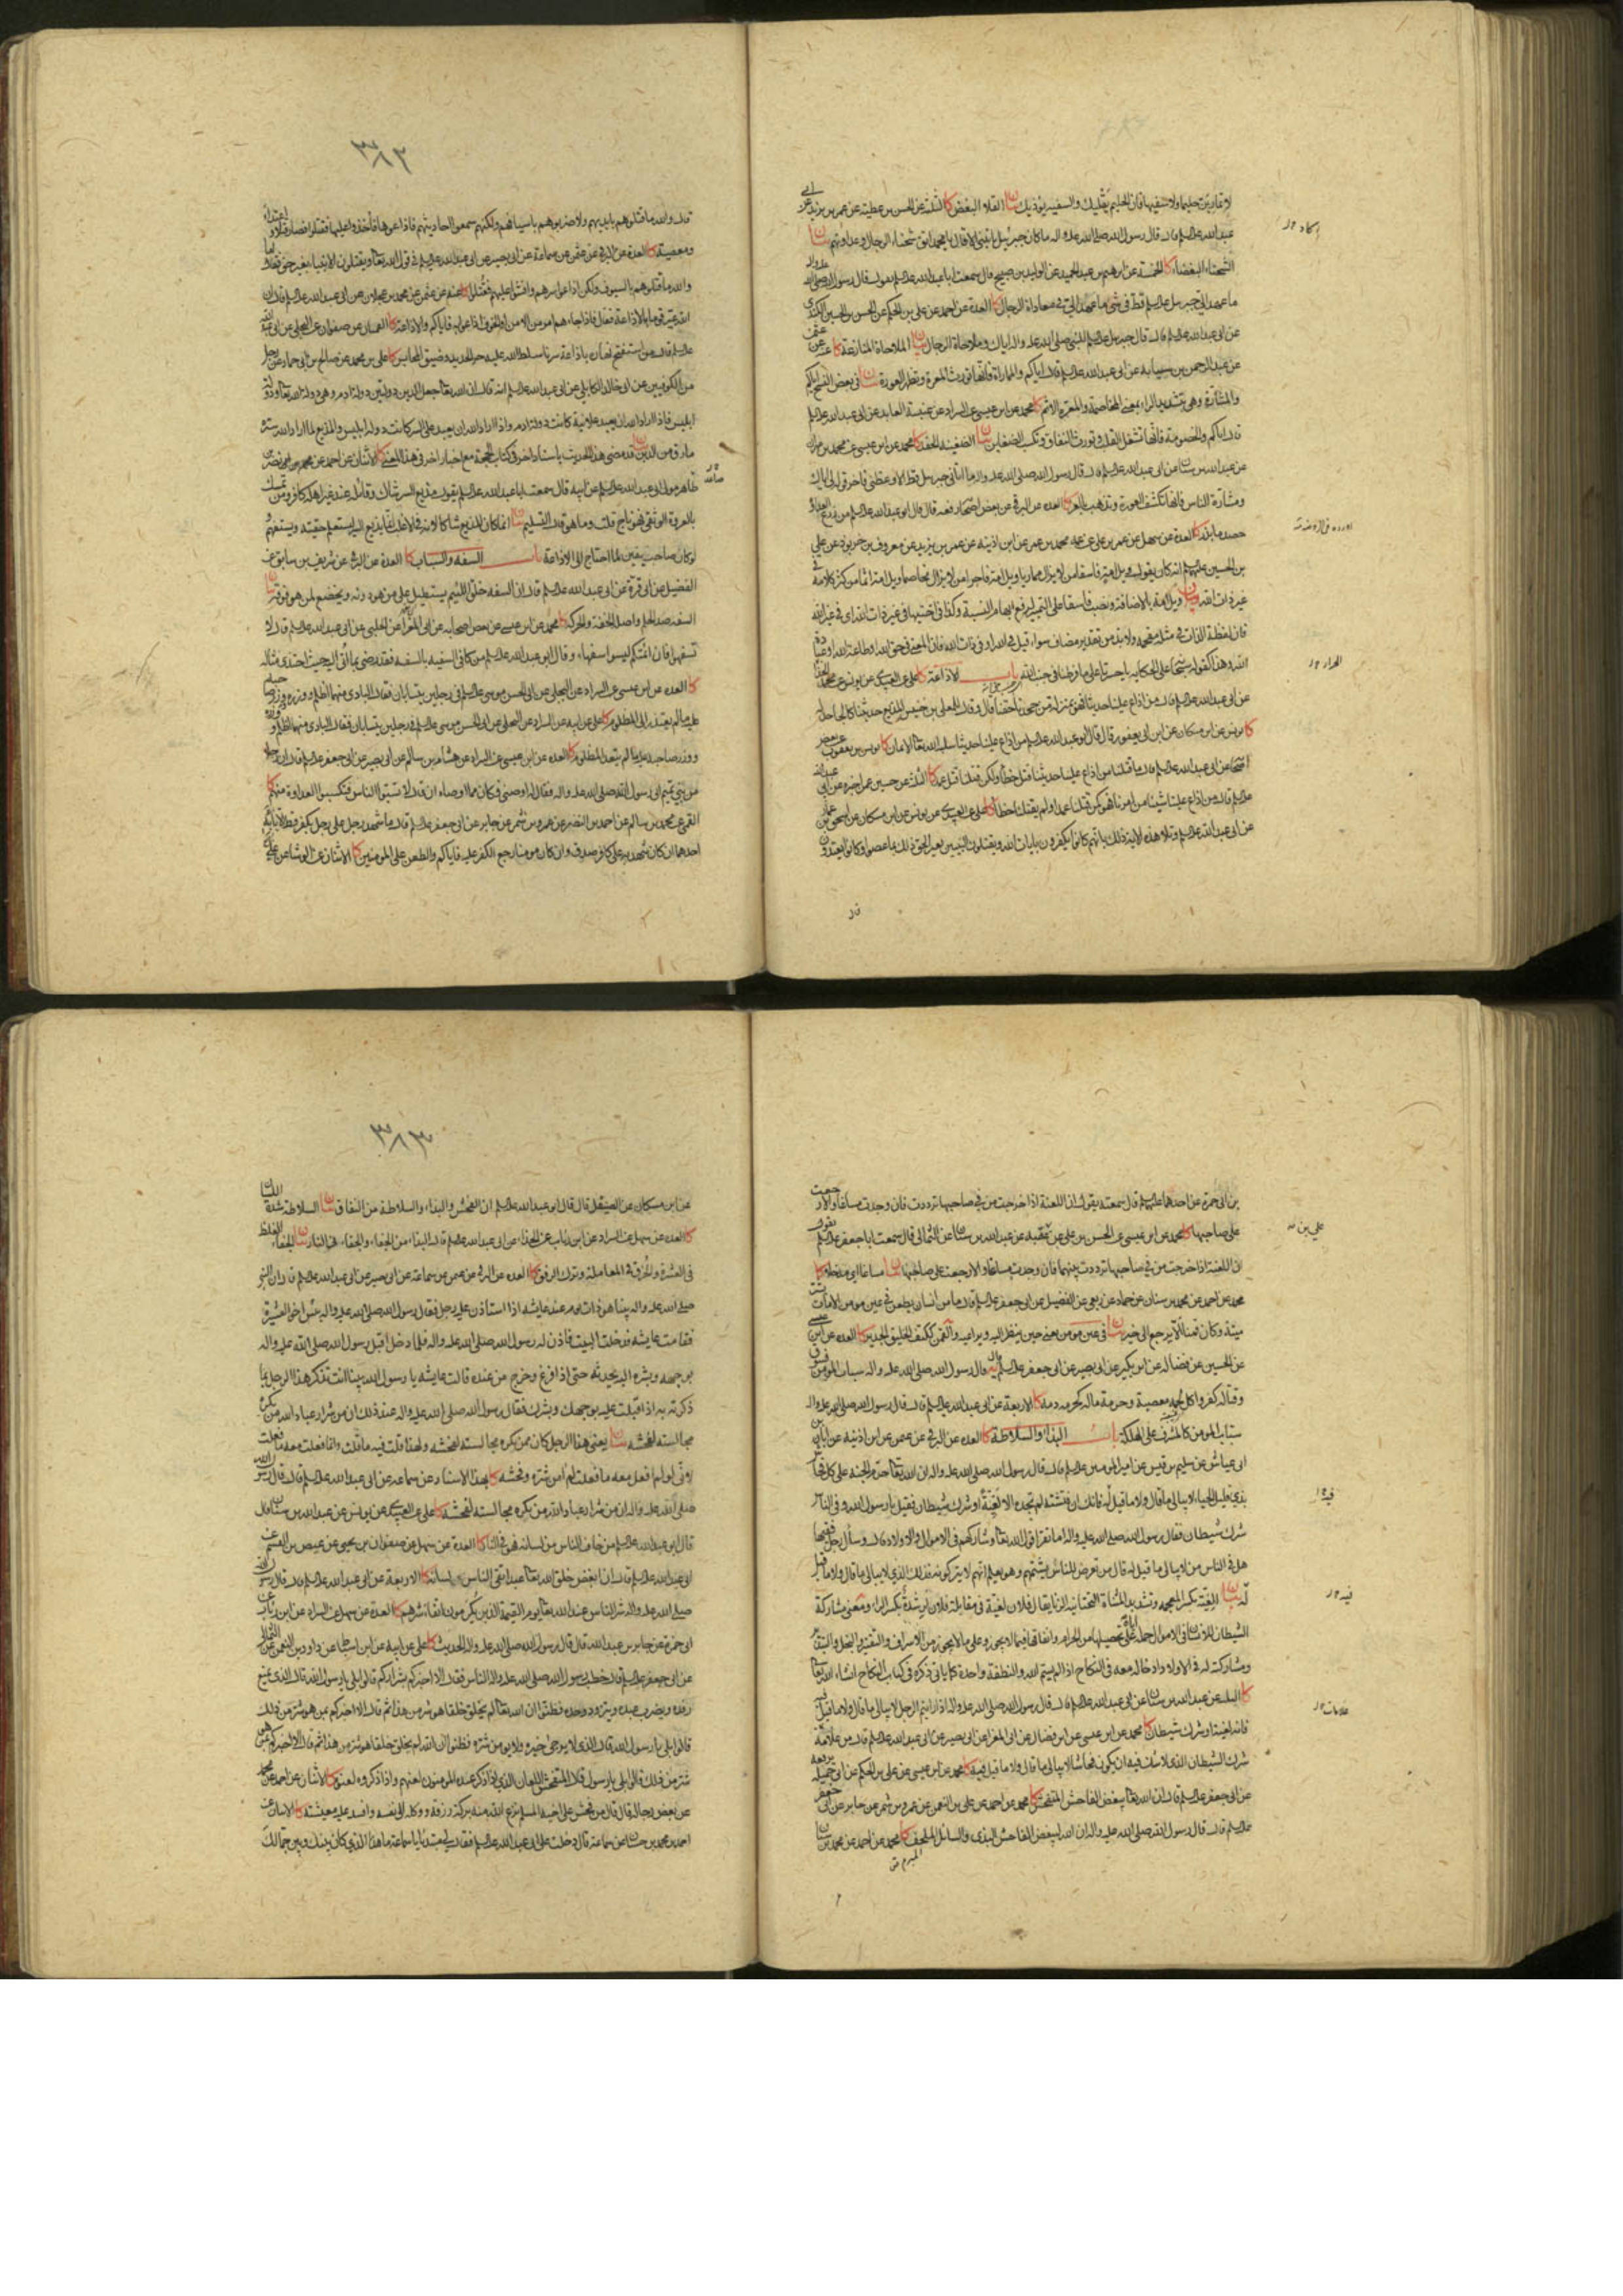 لا تمارين حليما ولا سفيها فان الحليم يقليك والسفيه يوذيك بيان القلاء البغض كا الثلثة عن الحسن بن عطيه عن عمر بن يزيد عن ابى
عبد الله عليه السلم قال قال رسول الله صلى الله عليه واله ما كان جبرئيل ياتينى الا قال يا محمد اتق شحناء الرجال وعداوتهم بيان
الشحناء البغضاء كا الخمسة عن ابرهيم بن عبد الحميد عن الوليد بن صبيح قال سمعت ابا عبد الله عليه السلم يقول قال رسول الله صلى الله عليه واله
ما عهد الى جبرئيل عليه السلم قط فى شئ ما عهد الى فى معاداة الرجال كا العدة عن احمد عن على بن الحكم عن الحسن بن الحسين الكندى
عن ابى عبد الله عليه السلم قال قال جبرئيل عليه السلم للنبى صلى الله عليه واله اياك وملاحاة الرجال بيان الملاحاة المنازعة كا عنه عن عثمن
عن عبد الرحمن بن سيابه عن ابى عبد الله عليه السلم قال اياكم والمماراة فانها تورث المعرة وتظهر العورة بيان فى بعض النسخ اياكم
والمشارة وهى بتشديد الراء بمعنى المخاصمة والمعرة الاثم كا محمد عن ابن عيسى عن السراد عن عنبسة العابد عن ابى عبد الله عليه السلم
قال اياكم والخصومة فانها تشغل القلب وتورث النفاق وتكسب الضغاين بيان الضغينه الحقد كا محمد عن ابن عيسى عن محمد بن مهران
عن عبد الله بن سنان عن ابى عبد الله عليه السلم قال قال رسول الله صلى الله عليه واله ما اتانى جبرئيل قط الا وعظنى فاخر قوله لى اياك
ومشارة الناس فانها تكشف العورة وتذهب بالعز كا العدة عن البرقى عن بعض اصحابه رفعه قال قال ابو عبد الله عليه السلم من زرع العداوة
حصد ما بذر كا العدة عن سهل عن عمر بن على عن عمه محمد بن عمر عن ابن اذينه عن عمر بن يزيد عن معروف بن خربوذ عن على
بن الحسين عليهما السلم انه كان يقول ويل امه فاسقا من لا يزال مماريا ويل امه فاجرا من لا يزال مخاصما ويل امه اثما من كثر كلامه فى
غير ذات الله بيان ويل امه بالاضافة ونصب فاسقا على التمييز لرفع ابهام النسبة وكذا فى اختيها فى غير ذات الله اى فى غير الله
فان لفظة الذات فى مثله مقحمة ولا بد من تقدير مضاف سواء قيل فى الله او فى ذات الله فان المعنى فى حق الله وطاعة الله وعبادة
الله وهذا كقوله سبحانه على الحكايه يا حسرتا على ما فرطت فى جنب الله باب الاذاعة كا على عن العبيدى عن يونس عن محمد الخزاز
عن ابى عبد الله عليه السلم قال من اذاع علينا حديثا فهو بمنزلة من جحدنا حقنا قال وقال للمعلى بن خنيس المذيع حديثنا كالجاحد له
كا يونس عن ابن مسكان عن ابن ابى يعفور قال قال ابو عبد الله عليه السلم من اذاع علينا حديثا سلبه الله تعالى الايمان كا يونس بن يعقوب عن بعض
اصحابه عن ابى عبد الله عليه السلم قال ما قتلنا من اذاع علينا حديثنا قتل خطأ ولكن قتلنا قتل عمد كا الثلثة عن حسين عمن اخبره عن ابى عبد الله
عليه السلم قال من اذاع علينا شيئا من امرنا فهو كمن قتلنا عمدا ولم يقتلنا خطأ كا على عن العبيدى عن يونس عن ابن مسكان عن اسحق بن عمار
عن ابى عبد الله عليه السلم وتلا هذه الاية ذلك بانهم كانوا يكفرون بايات الله ويقتلون النبيين بغير الحق ذلك بما عصوا وكانوا يعتدون
قال
٣٨٢
قال والله ما قتلوهم بايديهم ولا ضربوهم باسيافهم ولكنهم سمعوا احاديثهم فاذاعوها فاخذوا عليها فقتلوا فصار قتلا واعتداء
ومعصية كا العدة عن البرقى عن عثمن عن سماعة عن ابى بصير عن ابى عبد الله عليه السلم فى قول الله تعالى ويقتلون الانبياء بغير حق فقال اما
والله ما قتلوهم بالسيوف ولكن اذاعوا سرهم وافشوا عليهم فقتلوا كا عنه عن عثمن عن محمد بن عجلان عن ابى عبد الله عليه السلم قال ان
الله عير قوما بالاذاعة فقال فاذا جاءهم امر من الامن او الخوف اذاعوا به فاياكم والاذاعة كا القميان عن صفوان عن البجلى عن ابى عبد الله
عليه السلم قال من استفتح نهاره باذاعة سرنا سلط الله عليه حر الحديد وضيق المحابس كا على بن محمد عن صالح بن ابى حماد عن رجل
من الكوفيين عن ابى خالد الكابلى عن ابى عبد الله عليه السلم انه قال ان الله تعالى جعل الدين دولتين دولة ادم وهى دولة الله تعالى ودولة
ابليس فاذا اراد الله ان يعبد علانية كانت دولة ادم واذا اراد الله ان يعبد فى السر كانت دولة ابليس والمذيع لما اراد الله ستره
مارق من الدين بيان قد مضى هذا الحديث باسناد اخر فى كتاب الحجة مع اخبار اخر فى هذا المعنى كا الاثنان عن احمد عن محمد بن نصر بن صاعد
مولى ابى عبد الله عليه السلم عن ابيه قال سمعت ابا عبد الله عليه السلم يقول مذيع السر شاك وقائله عند غير اهله كافر ومن تمسك
بالعروة الوثقى فهو ناج قلت وما هو قال التسليم بيان انما كان المذيع شاكا لانه فى الاغلب انما يذيع السر ليستعلم حقيته ويستفهم ولو
كان صاحب يقين لما احتاج الى الاذاعة باب السفه والسباب كا العدة عن البرقى عن شريف بن سابق عن
الفضيل عن ابى قرة عن ابى عبد الله عليه السلم قال ان السفه خلق اللئيم يستطيل على من هو دونه ويخضع لمن هو فوقه بيان
السفه ضد الحلم واصله الخفة والحركة كا محمد عن ابن عيسى عن بعض اصحابه عن ابى المغرا عن الحلبى عن ابى عبد الله عليه السلم قال لا
تسفهوا فان ائمتكم ليسوا سفهاء وقال ابو عبد الله عليه السلم من كافى السفيه بالسفه فقد رضى بما اتى اليه حيث احتذى مثاله
كا العدة عن ابن عيسى عن السراد عن البجلى عن ابى الحسن موسى عليه السلم فى رجلين يتسابان فقال البادى منهما اظلم ووزره ووزر صاحبه
عليه ما لم يعتذر الى المظلوم كا على عن ابيه عن السراد عن البجلى عن ابى الحسن موسى عليه السلم فى رجلين يتسابان فقال البادى منهما اظلم ووزره
ووزر صاحبه عليه ما لم يتعد المظلوم كا العدة عن ابن عيسى عن السراد عن هشام بن سالم عن ابى بصير عن ابى جعفر عليه السلم قال ان رجلا
من بنى تميم اتى رسول الله صلى الله عليه واله فقال اوصنى فكان مما اوصاه ان قال لا تسبوا الناس فتكسبوا العداوة منهم كا
القمى عن محمد بن سالم عن احمد بن النضر عن عمرو بن شمر عن جابر عن ابى جعفر عليه السلم قال ما شهد رجل على رجل بكفر قط الا باء به
احدهما ان كان شهد به على كافر صدق وان كان مومنا رجع الكفر عليه فاياكم والطعن على المومنين كا الاثنان عن الوشا عن على
بن ابى حمزة عن احدهما عليهما السلم قال سمعته يقول ان اللعنة اذا خرجت من فى صاحبها ترددت فان وجدت مساغا والا رجعت
على صاحبها كا محمد عن ابن عيسى عن الحسن بن على عن على بن عقبه عن عبد الله بن سنان عن الثمالى قال سمعت ابا جعفر عليه السلم يقول
ان اللعنة اذا خرجت من فى صاحبها ترددت بينهما فان وجدت مساغا والا رجعت على صاحبها بيان مساغا اى مدخلا كا
محمد عن احمد عن محمد بن سنان عن حماد عن ربعى عن الفضيل عن ابى جعفر عليه السلم قال ما من انسان يطعن فى عين مومن الا مات بشر
ميتة وكان قمنا الا يرجع الى خير بيان فى عين مومن يعنى حين ينظر اليه ويراعيه والقمن ككتف الخليق الجدير كا العدة عن ابن عيسى
عن الحسين عن فضاله عن ابن بكير عن ابى بصير عن ابى جعفر عليه السلم قال قال رسول الله صلى الله عليه واله سباب المومن فسوق
وقتاله كفر واكل لحمه معصية وحرمة ماله كحرمة دمه كا الاربعة عن ابى عبد الله عليه السلم قال قال رسول الله صلى الله عليه واله
سباب المومن كالمشرف على الهلكة باب البذاء والسلاطة كا العدة عن البرقى عن عثمن عن ابن اذينه عن ابان بن
ابى عياش عن سليم بن قيس عن امير المومنين عليه السلم قال قال رسول الله صلى الله عليه واله ان الله تعالى حرم الجنة على كل فحاش
بذى قليل الحياء لا يبالى ما قال ولا ما قيل له فانك ان فتشته لم تجده الا لغية او شرك شيطان فقيل يا رسول الله وفى الناس
شرك شيطان فقال رسول الله صلى الله عليه واله اما تقرا قول الله تعالى وشاركهم فى الاموال والاولاد قال وسأل رجل فقيها
هل فى الناس من لا يبالى ما قيل له قال من تعرض للناس يشتمهم وهو يعلم انهم لا يتركونه فذلك الذى لا يبالى ما قال ولا ما قيل
له بيان الغية بكسر المعجمه وتشديد المثناة التحتانيه الزنا يقال فلان لغية فى مقابلة فلان لرشدة بكسر الراء ومعنى مشاركة
الشيطان للانسان فى الاموال حمله اياه على تحصيلها من الحرام وانفاقها فيما لا يجوز وعلى ما لا يجوز من الاسراف والتقتير والبخل والتبذير
ومشاركته له فى الاولاد ادخاله معه فى النكاح اذا لم يسم الله والنطفة واحدة كما ياتى ذكره فى كتاب النكاح انشاء الله تعالى
كا الثلثة عن عبد الله بن سنان عن ابى عبد الله عليه السلم قال قال رسول الله صلى الله عليه واله اذا رايتم الرجل لا يبالى ما قال ولا ما قيل له
فانه لغية او شرك شيطان كا محمد عن ابن عيسى عن ابن فضال عن ابى المغرا عن ابى بصير عن ابى عبد الله عليه السلم قال من علامة
شرك الشيطان الذى لا شك فيه ان يكون فحاشا لا يبالى ما قال ولا ما قيل فيه كا محمد عن ابن عيسى عن على بن الحكم عن ابى جميله يرفعه
عن ابى جعفر عليه السلم قال ان الله تعالى يبغض الفاحش المتفحش كا محمد عن احمد عن على بن النعمن عن عمرو بن شمر عن جابر عن ابى جعفر
عليه السلم قال قال رسول الله صلى الله عليه واله ان الله يبغض الفاحش البذى والسائل الملحف كا محمد عن احمد عن محمد بن سنان
٣٨٣
عن ابن مسكان عن الصيقل قال قال ابو عبد الله عليه السلم ان الفحش والبذاء والسلاطة من النفاق بيان السلاطة شدة اللسان
كا العدة عن سهل عن السراد عن ابن رئاب عن الحذاء عن ابى عبد الله عليه السلم قال البذاء من الجفاء والجفاء فى النار بيان الجفاء الغلظ
فى العشرة والخرق فى المعاملة وترك الرفق كا العدة عن البرقى عن عثمن عن سماعة عن ابى بصير عن ابى عبد الله عليه السلم قال ان النبى
صلى الله عليه واله بينا هو ذات يوم عند عايشه اذا استاذن عليه رجل فقال رسول الله صلى الله عليه واله بئس اخو العشيرة
فقامت عايشه فدخلت البيت فاذن له رسول الله صلى الله عليه واله فلما دخل اقبل رسول الله صلى الله عليه واله
بوجهه وبشره اليه يحدثه حتى اذا فرغ وخرج من عنده قالت عايشه يا رسول الله بينا انت تذكر هذا الرجل بما
ذكرته به اذ اقبلت عليه بوجهك وبشرك فقال رسول الله صلى الله عليه واله عند ذلك ان من شرار عباد الله من تكره
مجالسته لفحشه بيان يعنى هذا الرجل كان ممن يكره مجالسته لفحشه ولهذا قلت فيه ما قلت وانما فعلت معه ما فعلت
لانى لو لم افعل معه ما فعلت لم امن شره وفحشه كا بهذا الاسناد عن سماعه عن ابى عبد الله عليه السلم قال قال رسول الله
صلى الله عليه واله ان من شرار عباد الله من يكره مجالسته لفحشه كا على عن العبيدى عن يونس عن عبد الله بن سنان قال
قال ابو عبد الله عليه السلم من خاف الناس من لسانه فهو فى النار كا العدة عن سهل عن صفوان بن يحيى عن عيص بن القسم عن
ابى عبد الله عليه السلم قال ان ابغض خلق الله تعالى عبد اتقى الناس لسانه كا الاربعة عن ابى عبد الله عليه السلم قال قال رسول الله
صلى الله عليه واله شر الناس عند الله تعالى يوم القيمة الذين يكرمون اتقاء شرهم كا العدة عن سهل عن السراد عن ابن رئاب عن
ابى حمزة عن جابر بن عبد الله قال قال رسول الله صلى الله عليه واله الحديث كا على عن ابيه عن ابن اسباط عن داود بن النعمن عن الثمالى
عن ابى جعفر عليه السلم قال خطب رسول الله صلى الله عليه واله الناس فقال الا اخبركم بشراركم قالوا بلى يا رسول الله قال الذى يمنع
رفده ويضرب عبده ويتزود وحده فظنوا ان الله تعالى لم يخلق خلقا هو شر من هذا ثم قال الا اخبركم بمن هو شر من ذلك
قالوا بلى يا رسول الله قال الذى لا يرجى خيره ولا يؤمن شره فظنوا ان الله لم يخلق خلقا هو شر من هذا ثم قال الا اخبركم بمن هو
شر من ذلك قالوا بلى يا رسول الله قال المتفحش اللعان الذى اذا ذكر عنده المومنون لعنهم واذا ذكروه لعنوه كا الاثنان عن احمد عن محمد
عن بعض رجاله قال قال من فحش على اخيه المسلم نزع الله منه بركة رزقه ووكله الى نفسه وافسد عليه معيشته كا الاثنان عن
احمد بن محمد بن عن سماعة قال دخلت على ابى عبد الله عليه السلم فقال لى مبتديا يا سماعة ما هذا الذى كان بينك وبين جمالك